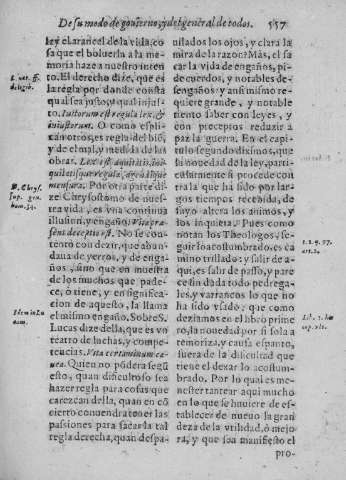 De su modo de gouierno, y del general de todos. 557
ley el arancel de la vida, co
sa que el boluerla a la me
moria haze a nuestro inten
to. El derecho dize, que es
la regla por donde consta
qual sea justo, y qual injus-
to. Iustorum est regula lex, &
iniustorum. O como espli-
can otros, es regla del biē,
y de el mal, y medida de las
obras. Lex est æquitatis, ini-
quitatisque regula, ac
mensura. Por otra parte di-
ze Chrysostomo de nues-
tra vida, es vna continua
illusion, y engaño, Vita præ-
sens deceptio est. No se con-
tentó con dezir, que abun-
daua de yerros, y de enga-
ños, sino que en muestra
de los muchos que pade-
ce, ò tiene, y en significa-
cion de aquesto, la llama
el mismo engaño. Sobre S.
Lucas dize della, que es vn
teatro de luchas, y compe-
tencias. Vita certaminum ca-
uea. Quien no põdera segũ
esto, quan dificultoso sea
hazer regla para cosas que
carezcan della, quan en cõ
cierto conuendra tener las
passiones para sacarla tal
regla derecha, quan despa-
l. nec. ff.
de legib.
D. Chrys.
sup. gen.
hom. 34.
Idem in Lu
cam.
uilados los ojos, y clara la
mira de la razon? Mas, el sa
car la vida de engaños, pi-
de cuerdos, y notables de-
sengaños: y ansi mismo re
quiere grande, y notable
tiento saber con leyes, y
con preceptos reduzir a
paz la guerra. En el capi-
tulo segundo diximos, que
la nouedad de la ley, parti-
cularmente si procede con
tra la que há sido por lar-
gos tiempos recebida, de
suyo altera los animos, y
los inquieta. Pues como
notan los Theologos, se-
guir lo acostumbrado, es ca
mino trillado: y salir de a-
qui, es salir de passo, y pare
ce sin duda todo pedrega-
les, y varrancos lo que no
ha sido vsado: que como
deziamos en el libro prime
ro, la nouedad por si sola a
temoriza, y causa espanto,
fuera de la dificultad que
tiene el dexar lo acostum-
brado. Por lo qual es me-
nester tantear aqui mucho
en lo que se huuiere de es-
tablecer de nueuo la gran
deza de la vtilidad, ò mejo
ra, y que sea manifiesto el
pro-
1. 2. q. 97.
art. 2.
Lib. 1.
cap.